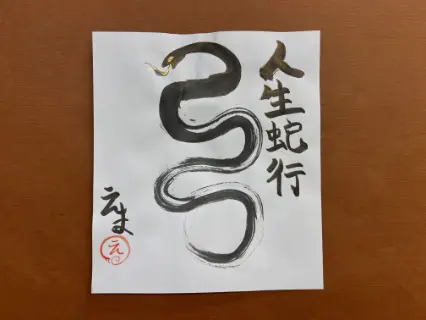 人生蛇行
えま
え